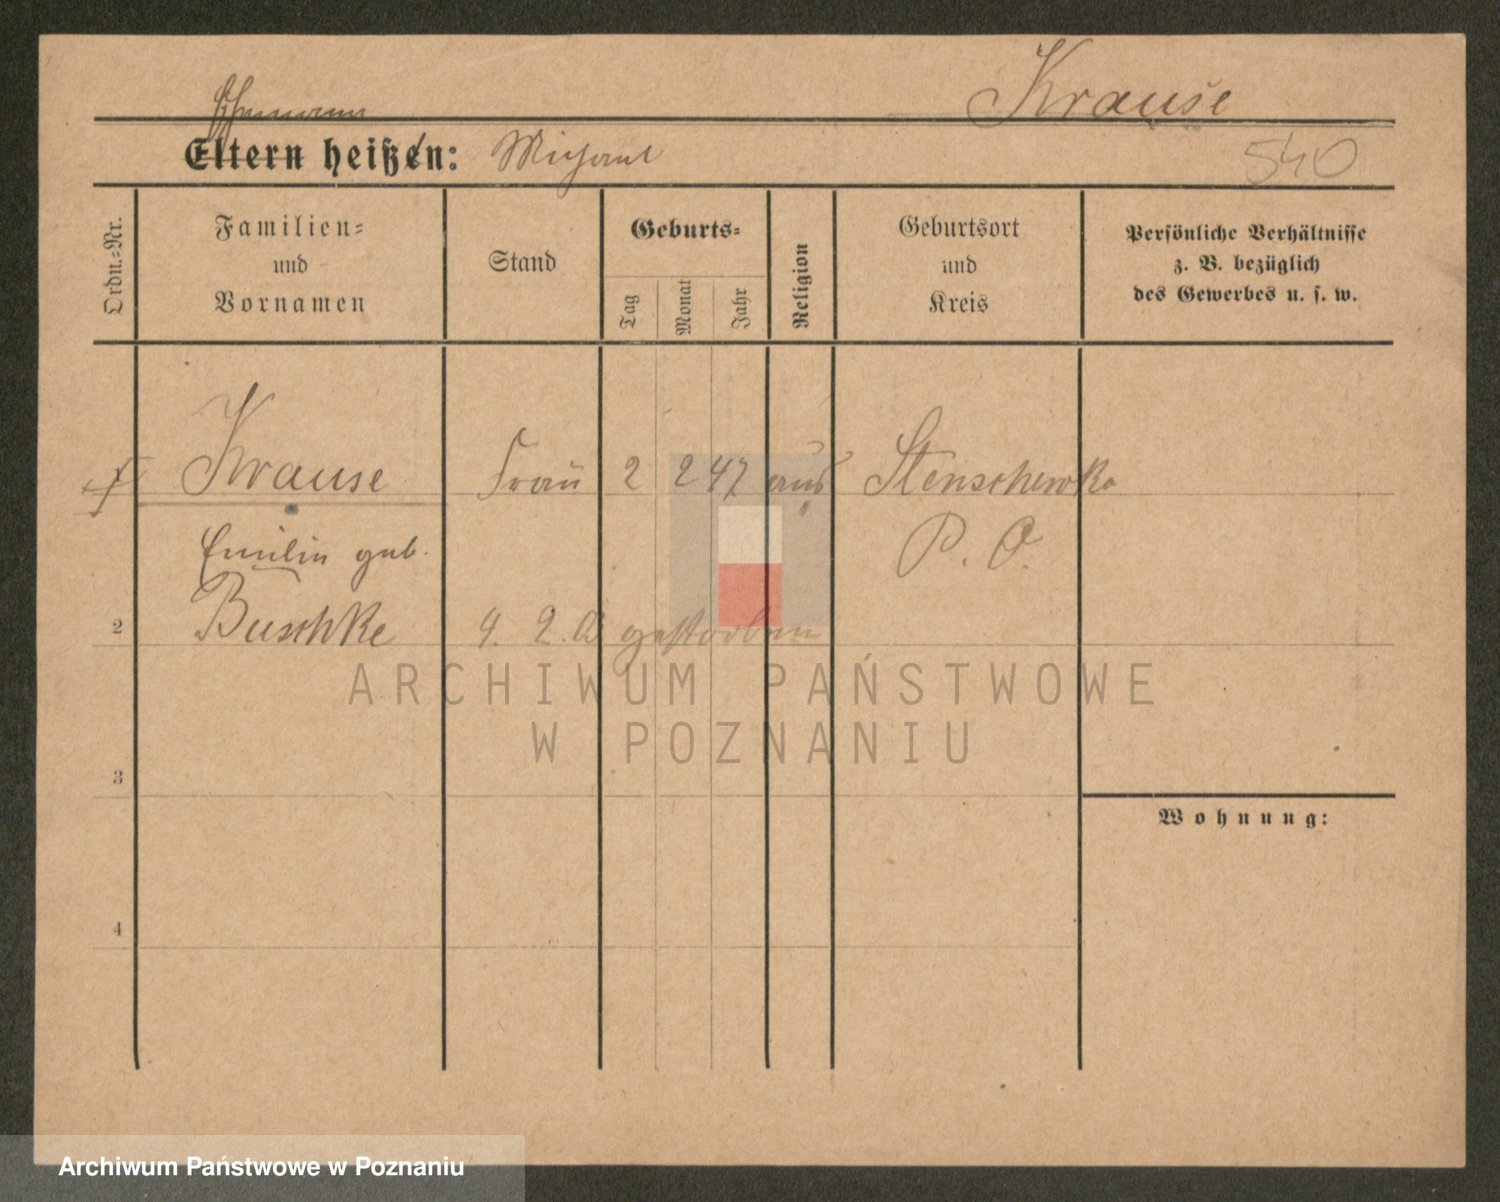 Krause
Ehemann
Eltern heißen: Michael
540
Ordn.-Nr.
Familien-
und
Vornamen
Stand
Geburts-
Tag
Monat
Jahr
Religion
Geburtsort
und
Kreis
Persönliche Verhältnisse
z. B. bezüglich
des Gewerbes u. s. w.
Krause Frau 2 2 47 Stenschewko
Emilie geb. P. O.
2 Buschke 4. 2. gestorben
ARCHIWUM PAŃSTWOWE
W POZNANIU
3
Wohnung:
4
Archiwum Państwowe w Poznaniu